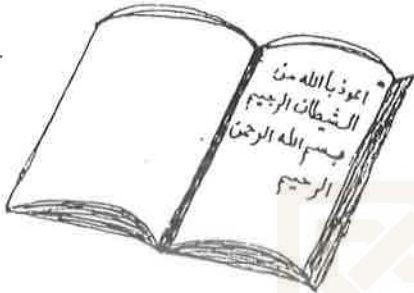 اعوذ بأالله من
الشيطان الرجيم
بسم الله الرحمن
الرحيم